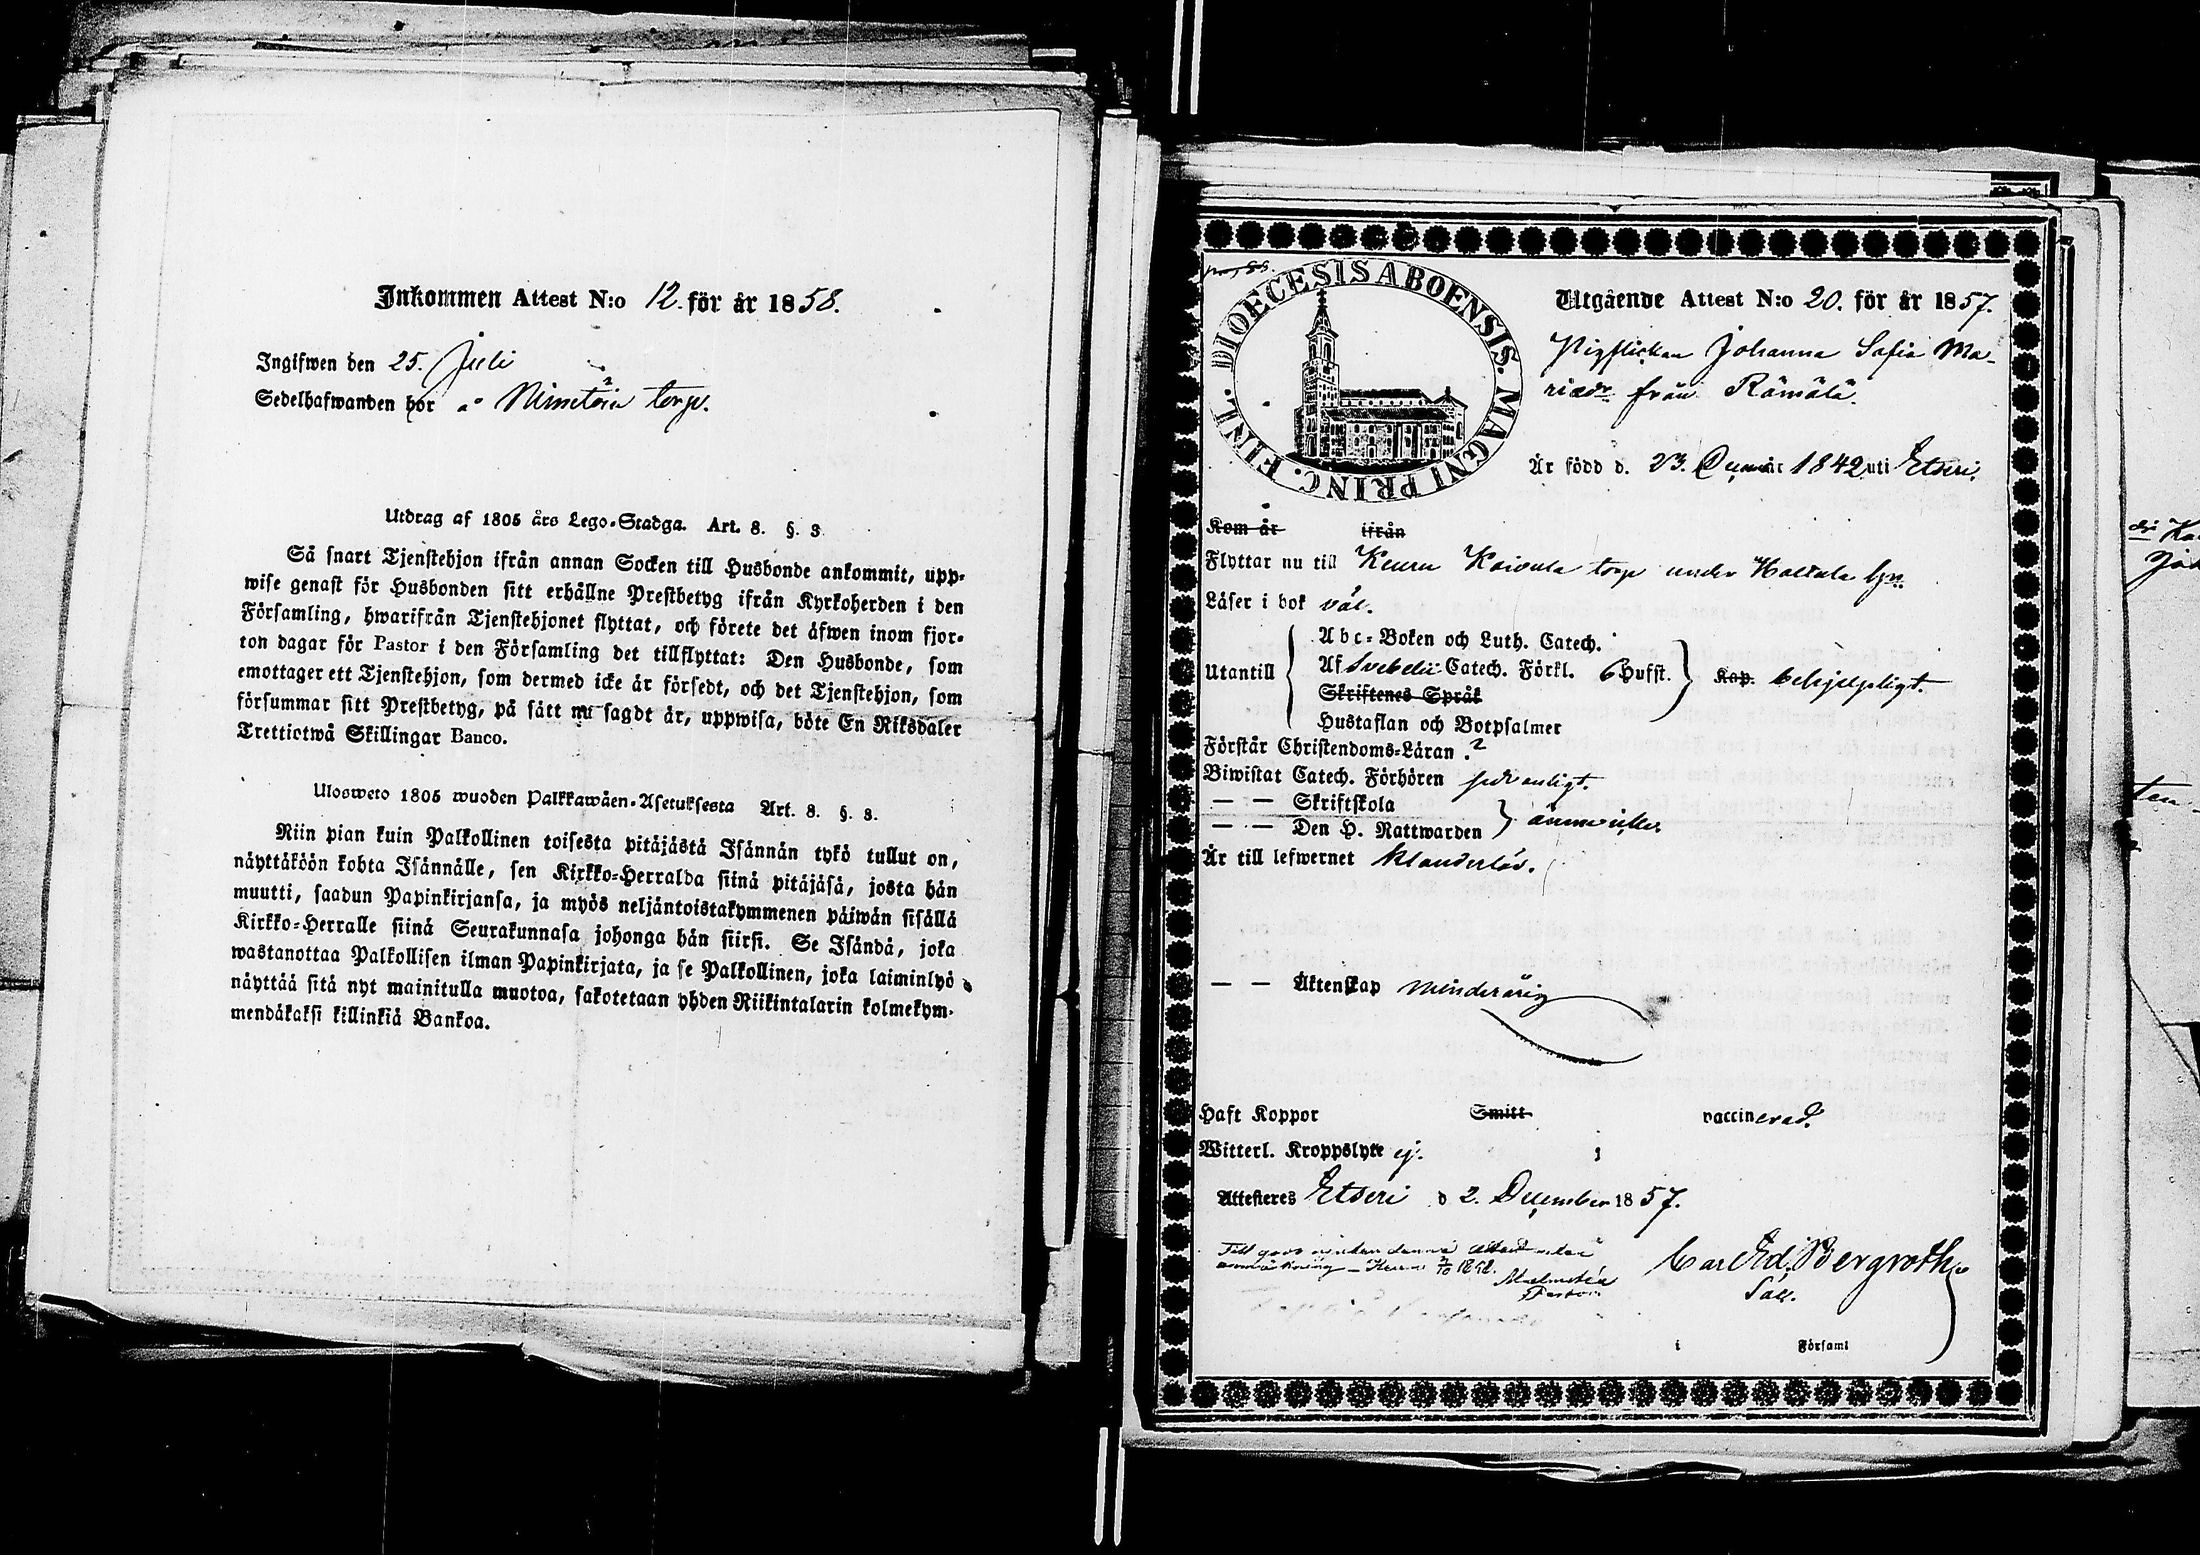 Inkommen Attest N:o 12. för år 1858.
Ingifwen den 25. Juli
Sedelhafwanden bor å torp.
Utdrag af 1805 års Lego-Stadga. Art. 8. §. 3
Så snart Tjenstehjon ifrån annan Socken till Husbonde ankommit, upp-
wise genast för Husbonden sitt erhållne Prestbetyg ifrån Kyrkoherden i den
Församling, hwarifrån Tjenstehjonet flyttat, och förete det äfwen inom fjor-
ton dagar för Pastor i den Församling det tillflyttat: Den Husbonde, som
emottager ett Tjenstehjon, som dermed icke är försedt, och det Tjenstehjon, som
försummar sitt Prestbetyg, på sätt nu sagdt är, uppwisa, böte En Riksdaler
Trettiotwå Skillingar Banco.
Ulosweto 1805 wuoden Palkkawäen-Asetuksesta Art. 8. §. 3.
Niin pian kuin Palkollinen toisesta pitäjästä Isännän tykö tullut on,
näyttäköön kohta Isännälle, sen Kirkko-Herralda siinä pitäjäsä, josta hän
muutti, saadun Papinkirjansa, ja myös neljäntoistakymmenen päiwän sisällä
Kirkko-Herralle siinä Seurakunnasa johonga hän siirsi. Se Isändä, joka
wastanottaa Palkollisen ilman Papinkirjata, ja se Palkollinen, joka laiminlyö
näyttää sitä nyt mainitulla muotoa, sakotetaan yhden Riikintalarin kolmekym-
mendäkaksi killinkiä Bankoa.
DIOECESIS ABOENSIS. MAGNI PRINC. FINL.
Utgående Attest N:o 20. för år 1857.
Pigflickan Johanna Sofia Ma-
riædr från Rämälä.
Är född d. 23. år 1842 uti Etseri.
Kom år ifrån
Flyttar nu till Keuru Koivula torp under Hattula
Läser i bok väl.
Utantill
Abc-Boken och Luth. Catech.
Af Svebelii Catech. Förkl. 6 Hufst.
Skriftenes Språk
Hustaflan och Botpsalmer
Kap. behjelpligt.
Förstår Christendoms-Läran
Biwistat Catech. Förhören ordentligt.
— — Skriftskola
— — Den H. Nattwarden
Är till lefwernet klanderlös.
— — Äktenskap minderårig
Haft Koppor Smitt vaccinerad.
Witterl. Kroppslyte ej.
Attesteras Etseri d 2. December 1857.
Carl Ed. Bergroth
i Församl